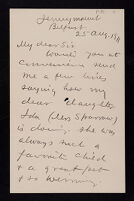 Jennymount
Belfast
25 Aug. 1911
My dear Sir
Would you at
convenience send
me a few lines
saying how my
dear daughter
Ida (Mrs Sparrow)
is doing. She was
always such a
favorite child
& a great pet
& so winning.